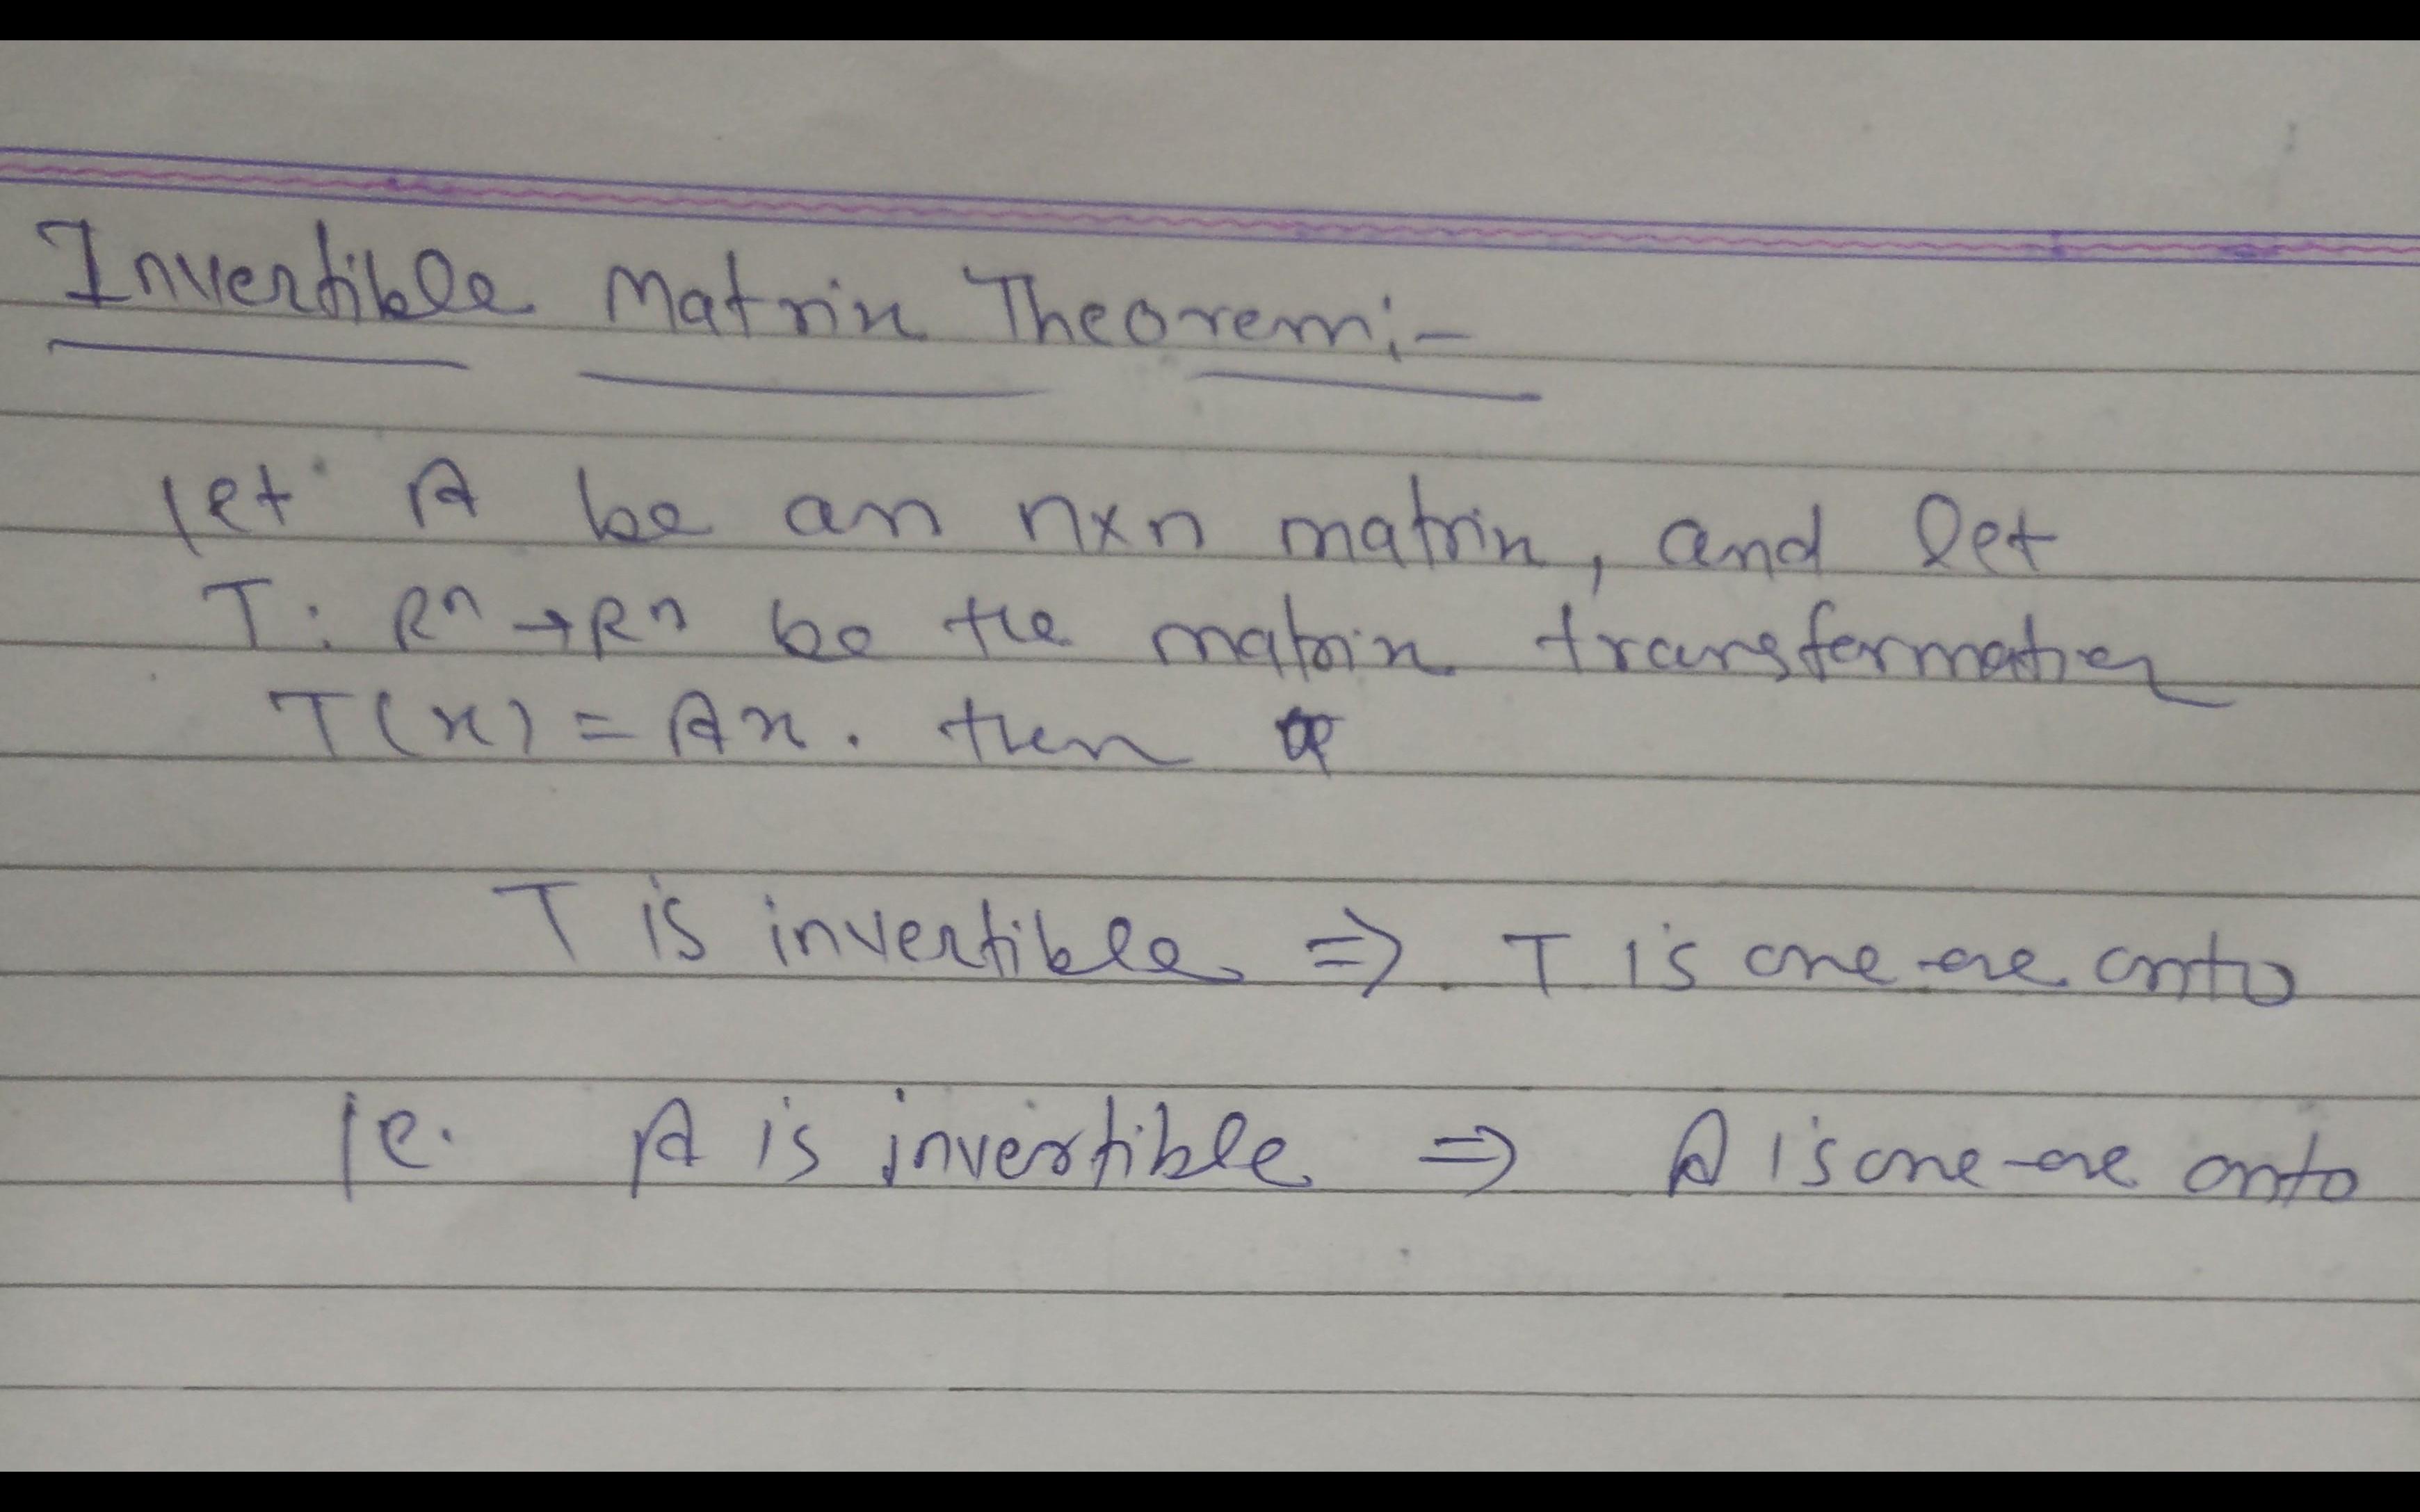 Invertible Matrix Theorem:-
let A be an n×n matrix, and let
T: Rⁿ→Rⁿ be the matrix transformation
T(x) = Ax. then
T is invertible ⇒ T is one-one onto
ie. A is invertible ⇒ A is one-one onto